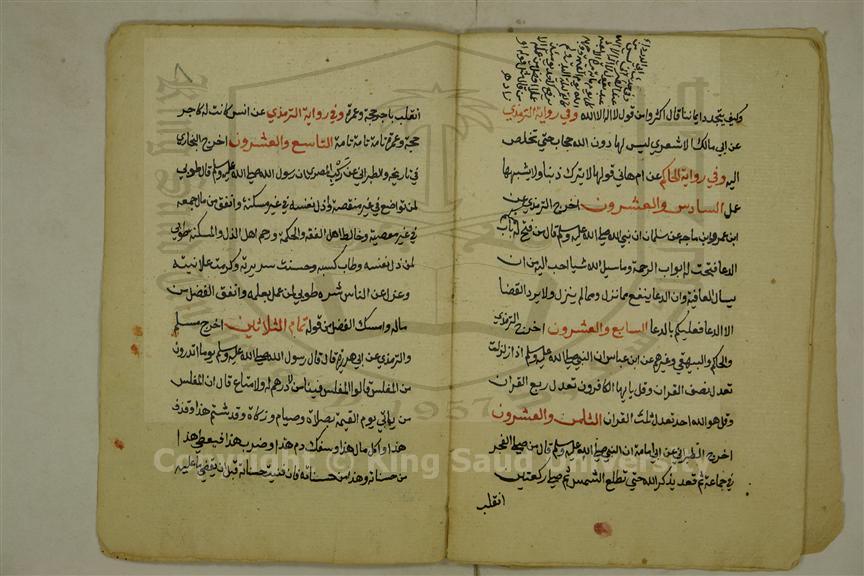 وكيف يتجدد ايماننا قال اكثروا من قول لا اله الا الله وفي رواية الترمذي
عن ابي مالك الاشعري ليس لها دون الله حجاب حتى تخلص
اليه وفي رواية الحاكم عن ام هاني قولها لا يترك ذنبا ولا يشبهها
عمل السادس والعشرون اخرج الترمذي عن
ابن عمر وابن ماجه عن سلمان ان نبي الله صلى الله عليه وسلم قال من فتح له باب
الدعا فتحت له ابواب الرحمة وما سيل الله شيا احب اليه من ان
يسال العافية وان الدعا ينفع مما نزل ومما لم ينزل ولا يرد القضا
الا الدعا فعليكم بالدعا السابع والعشرون اخرج الترمذي
والحاكم والبيهقي وغيرهم عن ابن عباس ان النبي صلى الله عليه وسلم اذا زلزلت
تعدل نصف القران وقل يا ايها الكافرون تعدل ربع القران
وقل هو الله احد تعدل ثلث القران الثامن والعشرون
اخرج الطبراني عن ابي امامة ان النبي صلى الله عليه وسلم قال من صلى الفجر
في جماعة ثم قعد يذكر الله حتى تطلع الشمس ثم صلى ركعتين
انقلب
٨
انقلب باجر حجة وعمرة وفي رواية الترمذي عن انس كانت له كاجر
حجة وعمرة تامة تامة تامة التاسع والعشرون اخرج البخاري
في تاريخه والطبراني عن ركب المصري ان رسول الله صلى الله عليه وسلم قال طوبى
لمن تواضع في غير منقصة واذل نفسه في غير مسكنة وانفق من مال جمعه
في غير معصية وخالط اهل الفقه والحكمة ورحم اهل الذل والمسكنة طوبى
لمن ذل نفسه وطاب كسبه وحسنت سريرته وكرمت علانيته
وعزل عن الناس شره طوبى لمن عمل بعلمه وانفق الفضل من
ماله وامسك الفضل من قوله تمام الثلاثين اخرج مسلم
والترمذي عن ابي هريرة قال قال رسول الله صلى الله عليه وسلم يوما اتدرون
من المفلس قالوا المفلس فينا من لا درهم له ولا متاع قال ان المفلس
من ياتي يوم القيمة بصلاة وصيام وزكاة وقد شتم هذا وقذف
هذا واكل مال هذا وسفك دم هذا وضرب هذا فيعطى هذا
من حسناته وهذا من حسناته فان فنيت حسناته قبل ان يقضي ما عليه
1957
Copyright © King Saud University